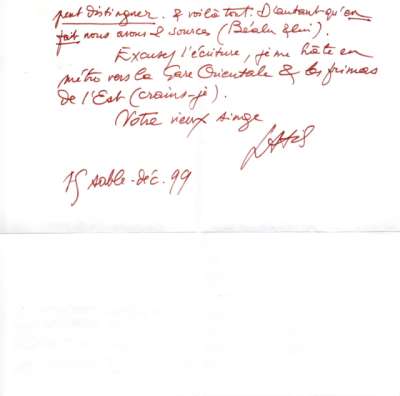 peut distinguer. & voilà tout. D'autant qu'en
fait nous avons 2 sources (Béalu & lui).
Excusez l'écriture, je me hâte en
métro vers la Gare Orientale & les frimas
de l'Est (crains-je).
Votre vieux singe
15 sable - déc. 99